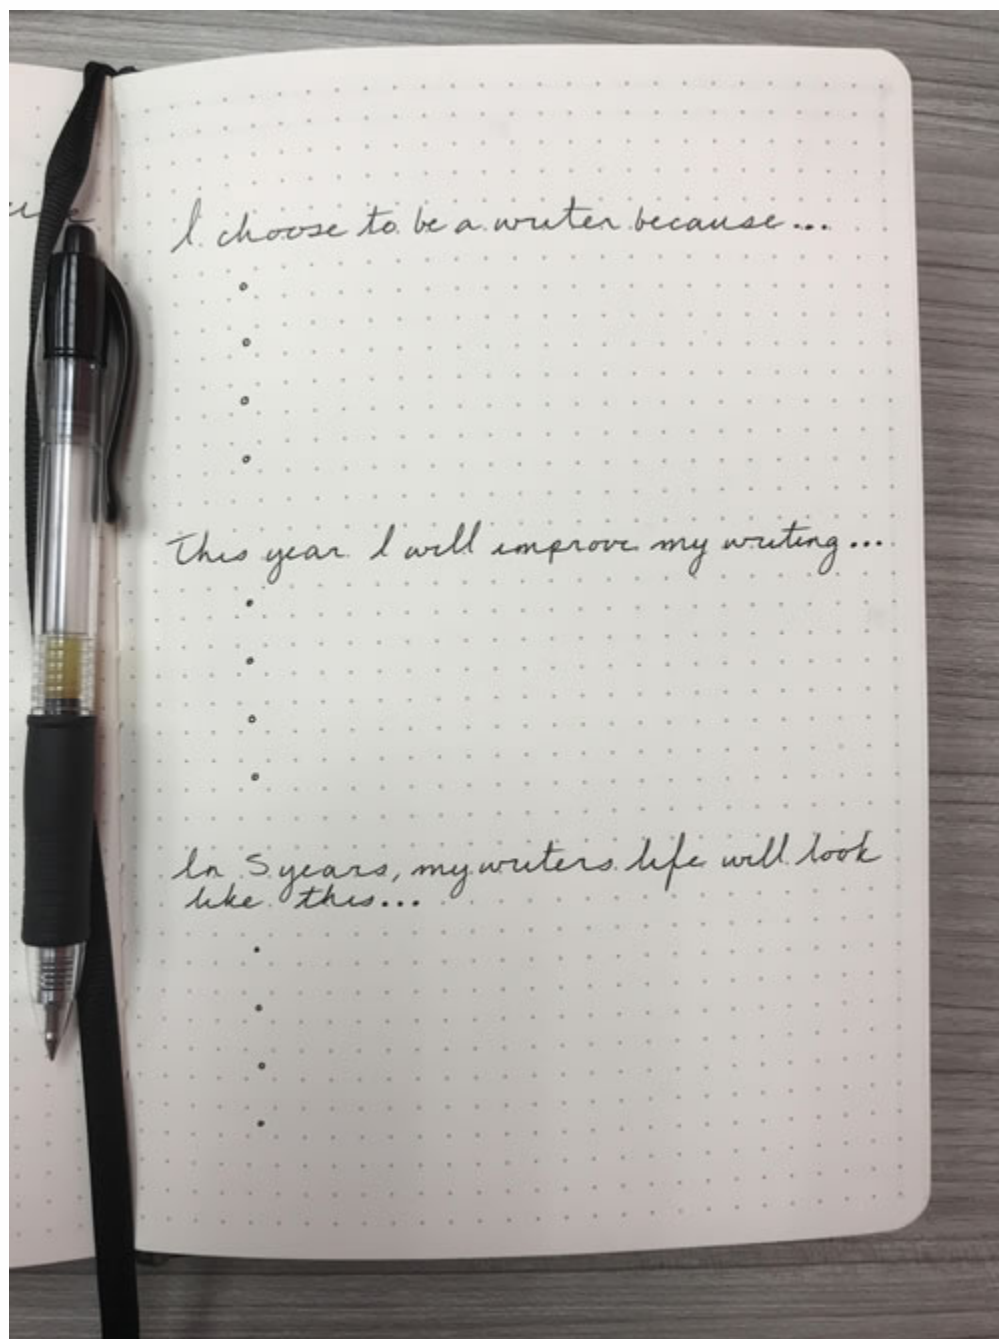 I choose to be a writer because...
This year I will improve my writing...
In 5 years, my writers life will look
like this...